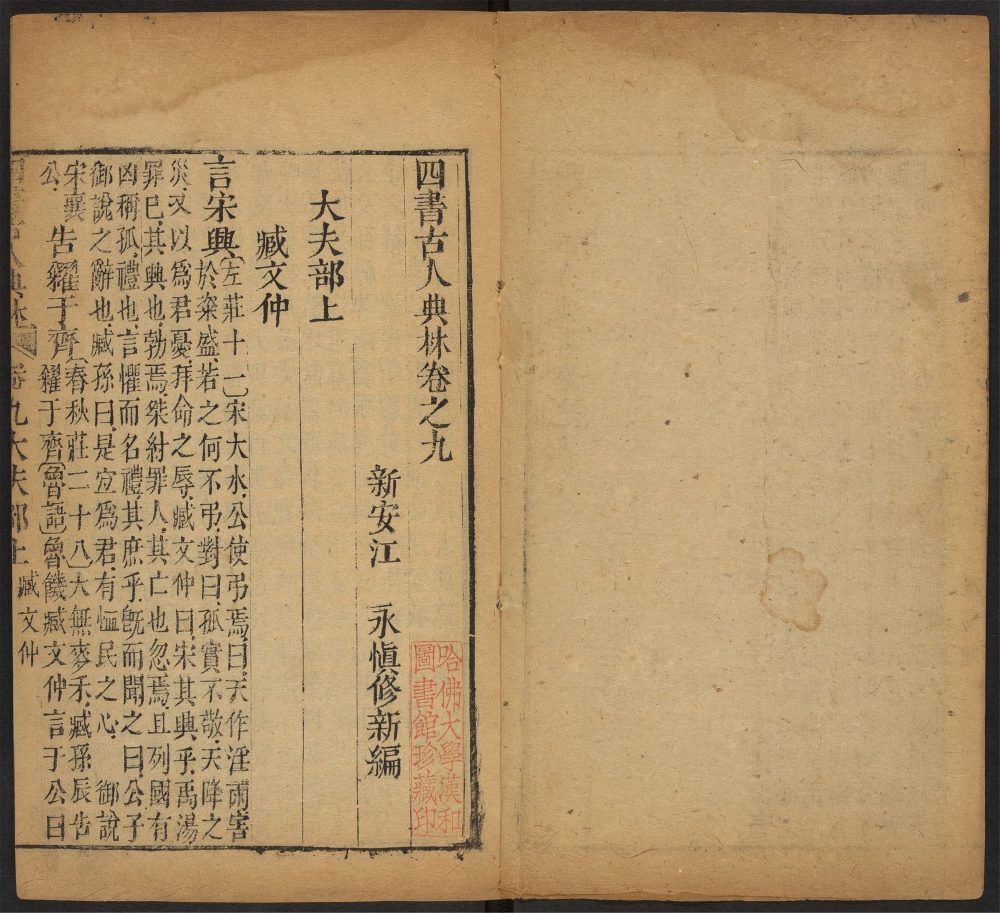 四書古人典林卷之九
新安江　永愼修新編
哈佛大學漢和
圖書館珍藏印
大夫部上
臧文仲
言宋興
(左莊十一)宋大水、公使弔焉、曰、天作淫雨、害
於粢盛、若之何不弔、對曰、孤實不敬、天降之
災、又以爲君憂、拜命之辱、臧文仲曰、宋其興乎、禹湯
罪已、其興也、勃焉、桀紂罪人、其亡也忽焉、且列國有
凶稱孤、禮也、言懼而名禮、其庶乎、旣而聞之曰、公子
御說之辭也、臧孫曰、是宜爲君、有恤民之心、　御說
宋襄
公、
告糴于齊
(春秋莊二十八)大無麥禾、臧孫辰告
糴于齊(魯語)魯饑、臧文仲言于公曰
四書古人典林　卷九大夫部上　臧文仲